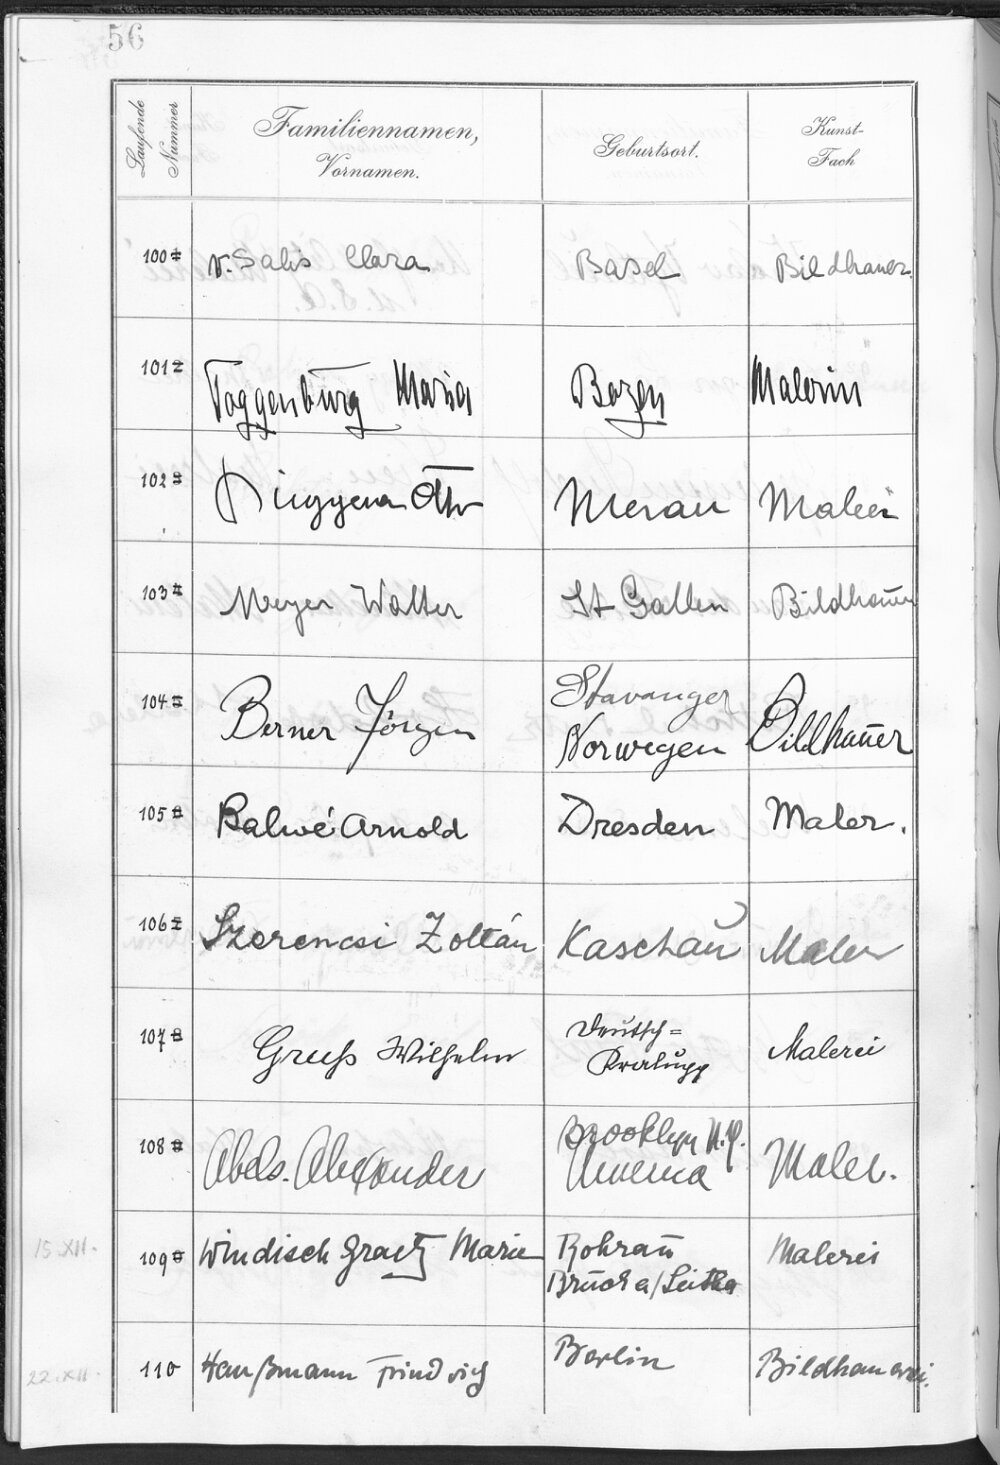 56
Laufende Nummer
Familiennamen, Vornamen.
Geburtsort.
Kunst-Fach
100 v. Salis Clara Basel Bildhauer.
101 Toggenburg Maria Bozen Malerin
102 Otto Meran Malerei
103 Meyer Walter St Gallen Bildhauer
104 Berner Jörgen Stavanger Norwegen Bildhauer
105 Balwé Arnold Dresden Maler.
106 Szerencsi Zoltán Kaschau Maler
107 Gruß Wilhelm Deutsch=Kralupp Malerei
108 Abels. Alexander Brooklyn N.Y. America Maler.
15. XII.
109 Windisch Graetz Marie Rohrau Bruck a/Leitha Malerei
22. XII.
110 Haußmann Friedrich Berlin Bildhauerei.